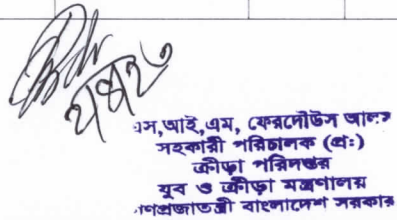 এস,আই,এম, ফেরদৌউস আলম
সহকারী পরিচালক (প্র:)
ক্রীড়া পরিদপ্তর
যুব ও ক্রীড়া মন্ত্রণালয়
গণপ্রজাতন্ত্রী বাংলাদেশ সরকার